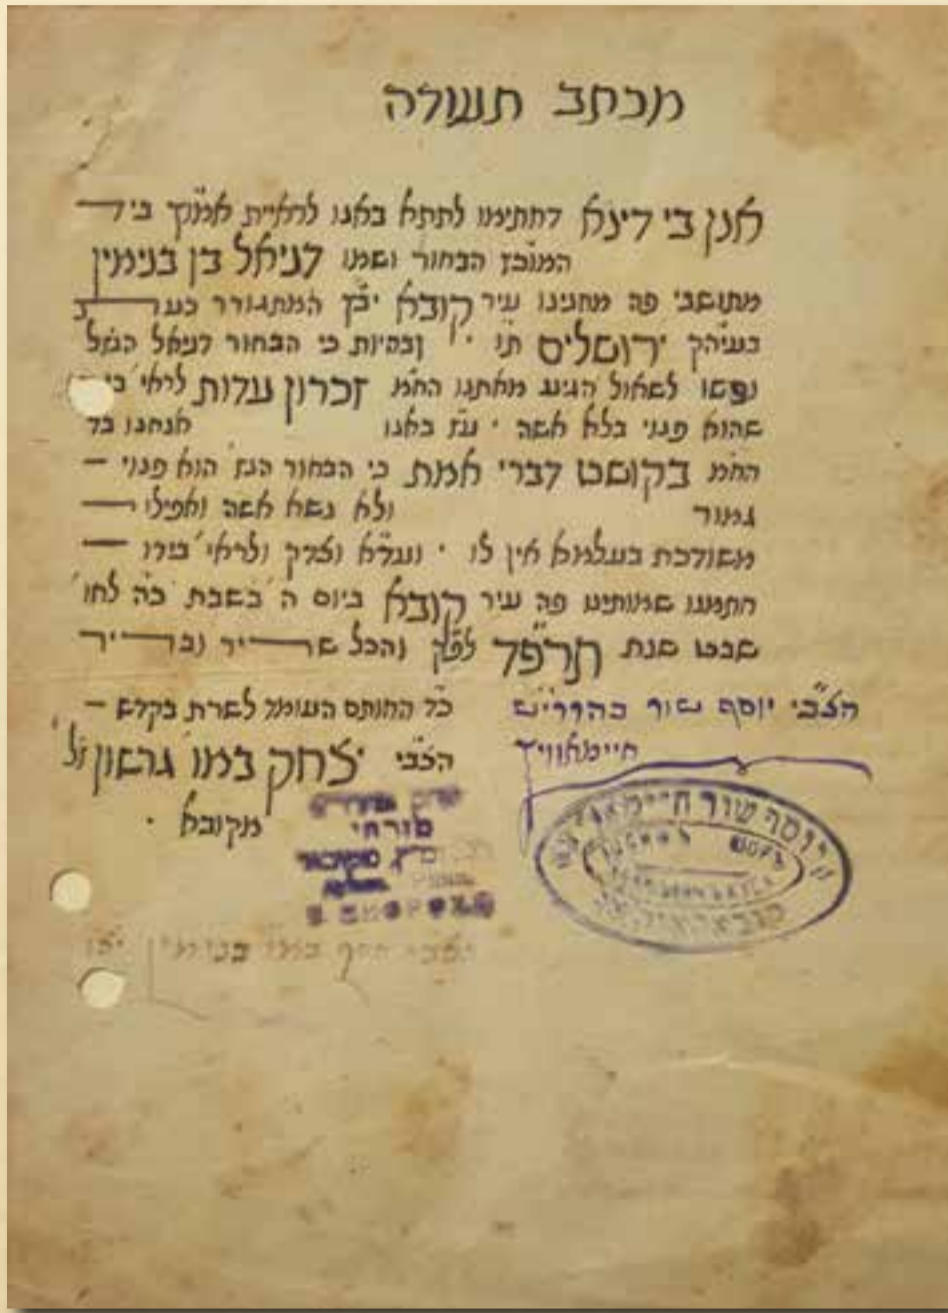 מכתב תעודה
אנן בי דינא דחתימו לתתא באנו לראיית אמו״ן ביד
המוכ״ז הבחור ושמו דניאל בן בנימין
מתושבי פה מחנינו עיר קובא יב״ן המתגורר כעת
בעיה״ק ירושלים ת״ו ובהיות כי הבחור דניאל הנז״ל
נפשו לשאול הגיע מאתנו החת״מ זכרון עדות לראי׳
שהוא פנוי בלא אשה ע״ז באנו אנחנו בד
החת״מ בקושט דברי אמת כי הבחור הנז׳ הוא פנוי
גמור ולא נשא אשה ואפילו
משודכת בעלמא אין לו ולראי׳ בידו
חתמנו שמותינו פה עיר קובא ביום ה׳ בשבת כ״ה לחו׳
שבט שנת תרפ״ד לפ״ק והכל שריר ובריר
הצב״י יוסף שור בהרד״ש
חיימאוויץ
כ״ד החותם העומד לשרת בקדש
הצב״י יצחק במו׳ גרשון ז״ל
מקובא
יוסף שור חיימאוויץ
מזרחי
הצב״י יוסף במו׳ בנימין